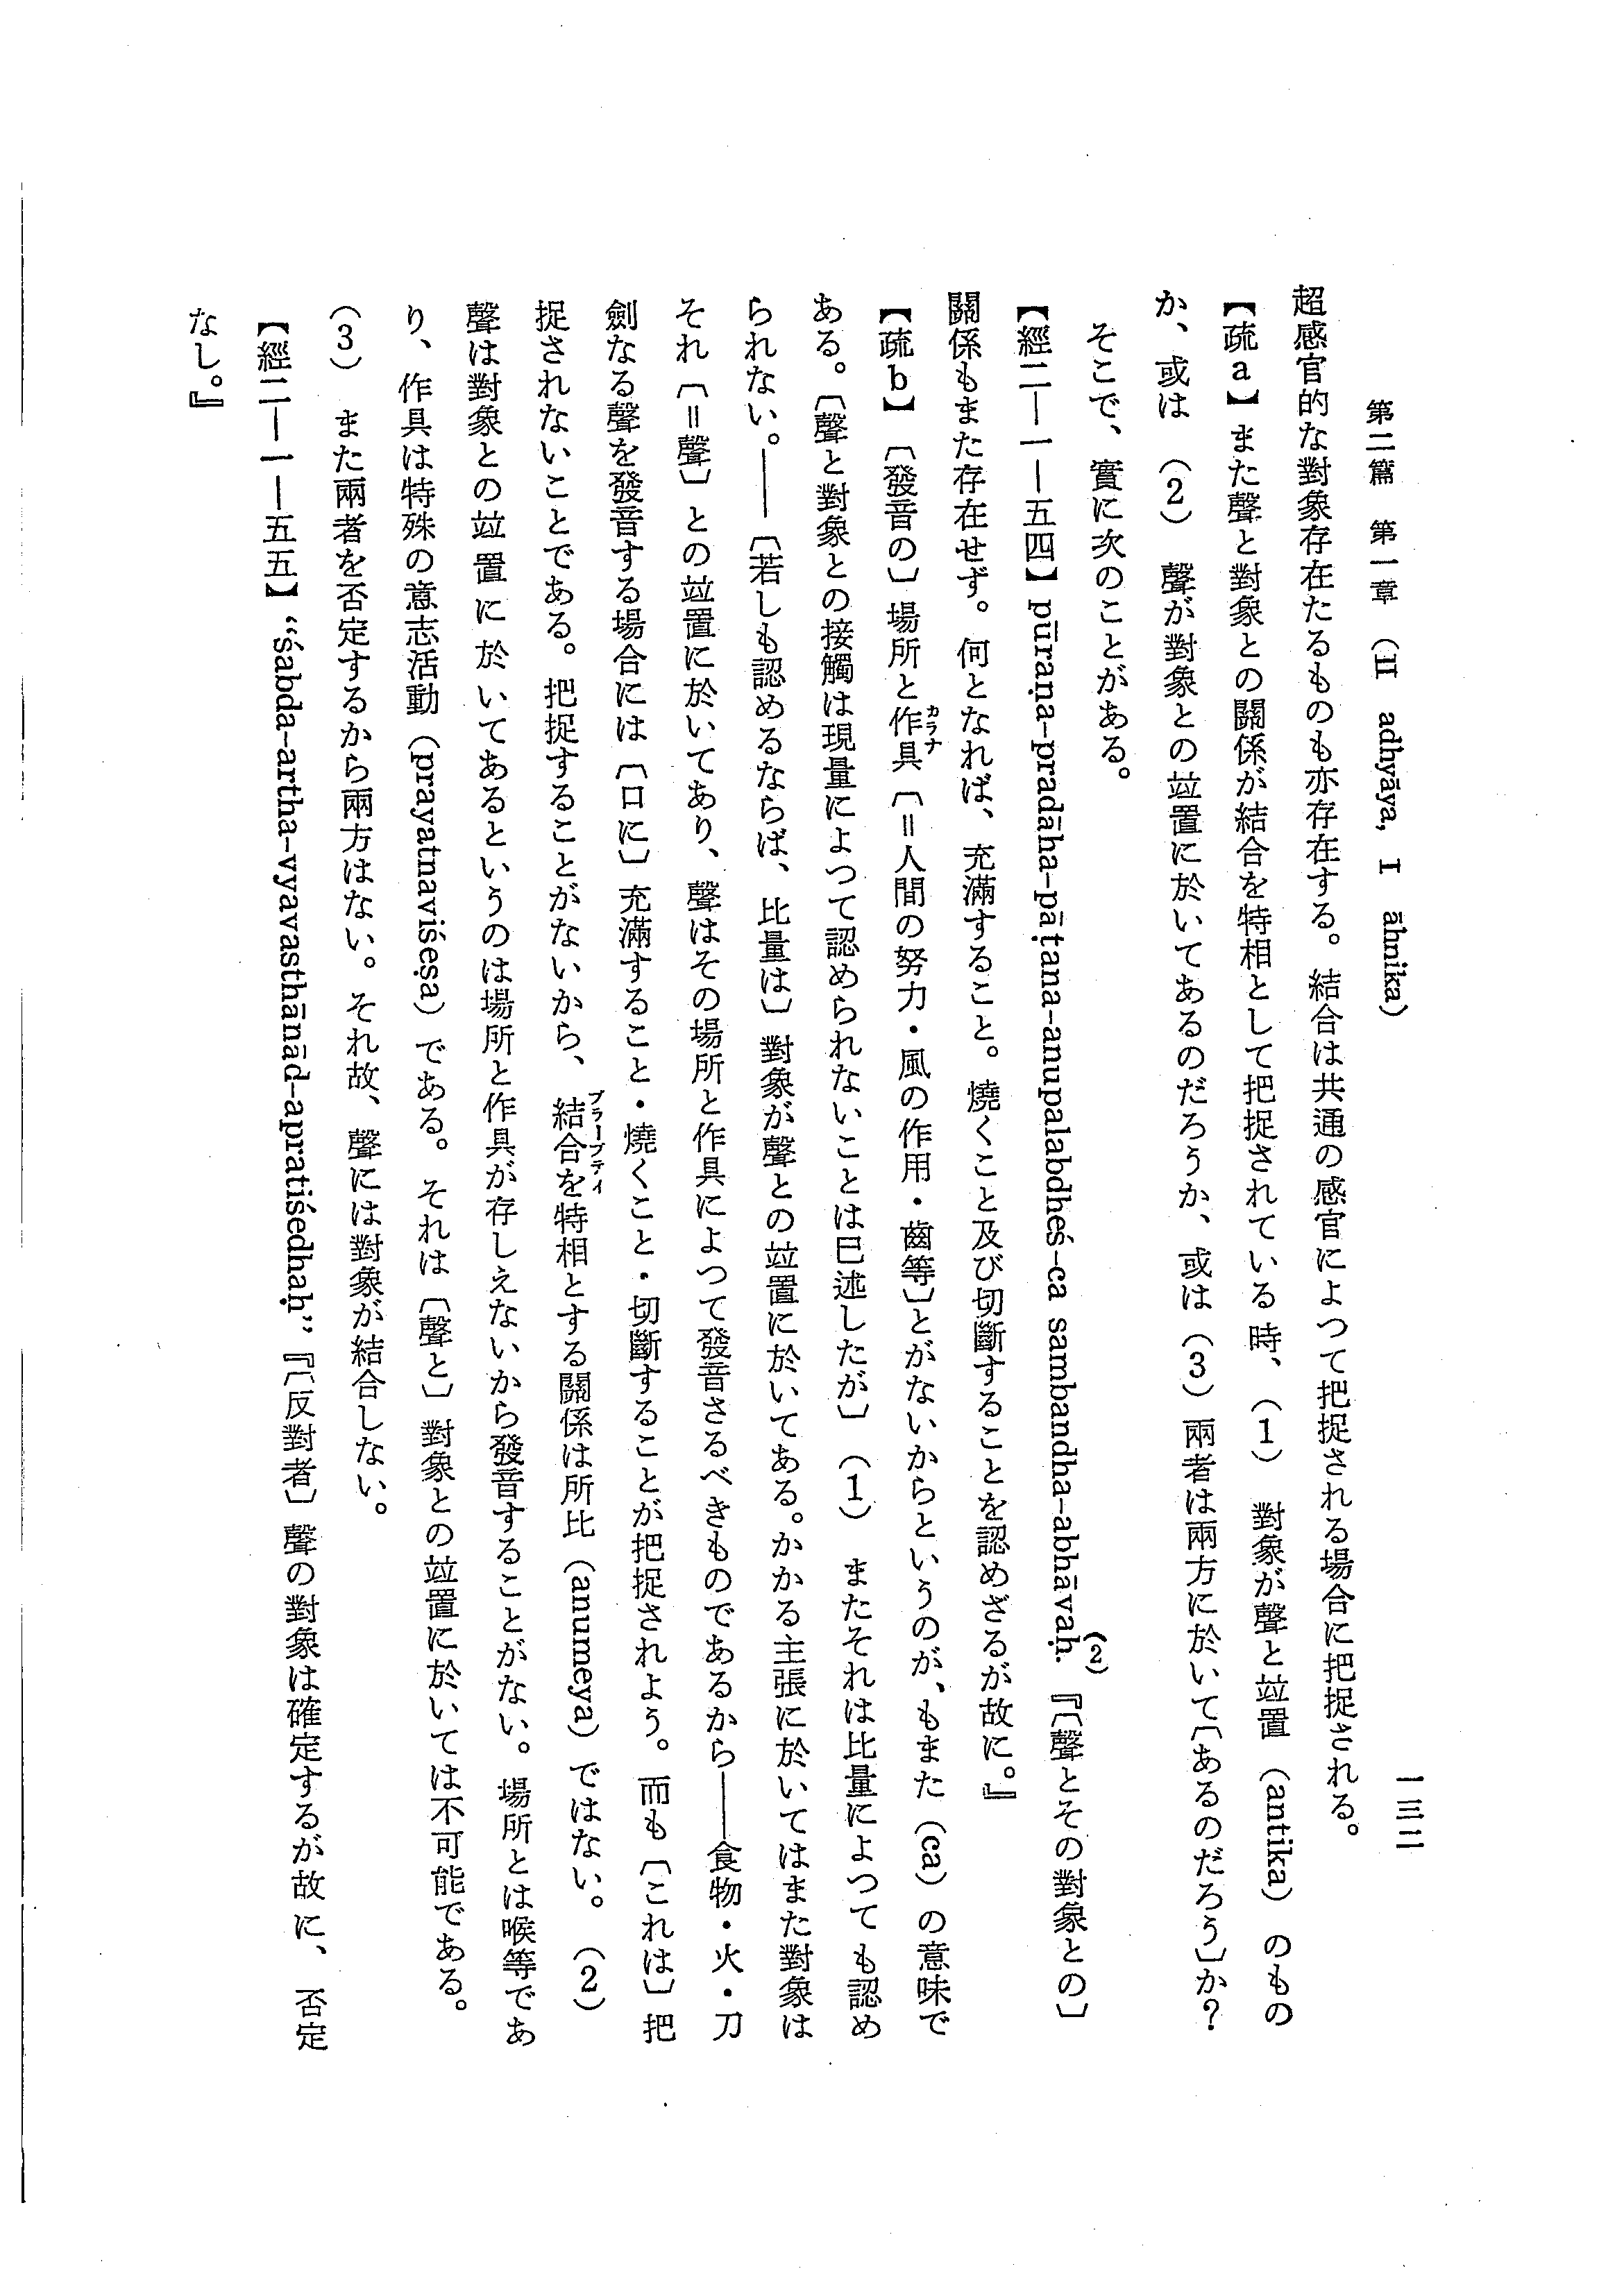 第二篇　第一章　（II adhyāya, I āhnika）
一三二
超感官的な對象存在たるものも亦存在する。結合は共通の感官によつて把捉される場合に把捉される。
【疏a】また聲と對象との關係が結合を特相として把捉されている時、（1）　對象が聲と竝置（antika）のもの
か、或は（2）　聲が對象との竝置に於いてあるのだろうか、或は（3）兩者は兩方に於いて〔あるのだろう〕か?
そこで、實に次のことがある。
【經二―一―五四】pūraṇa-pradāha-pāṭana-anupalabdheś-ca sambandha-abhāvaḥ.(2)『〔聲とその對象との〕
關係もまた存在せず。何となれば、充滿すること。燒くこと及び切斷することを認めざるが故に。』
【疏b】〔發音の〕場所と作具（カラナ）〔＝人間の努力・風の作用・齒等〕とがないからというのが、もまた（ca）の意味で
ある。〔聲と對象との接觸は現量によつて認められないことは巳述したが〕（1）　またそれは比量によつても認め
られない。――〔若しも認めるならば、比量は〕對象が聲との竝置に於いてある。かかる主張に於いてはまた對象は
それ〔＝聲〕との竝置に於いてあり、聲はその場所と作具によつて發音さるべきものであるから――食物・火・刀
劍なる聲を發音する場合には〔口に〕充滿すること・燒くこと・切斷することが把捉されよう。而も〔これは〕把
捉されないことである。把捉することがないから、結合（プラープティ）を特相とする關係は所比（anumeya）ではない。（2）
聲は對象との竝置に於いてあるというのは場所と作具が存しえないから發音することがない。場所とは喉等であ
り、作具は特殊の意志活動（prayatnaviśeṣa）である。それは〔聲と〕對象との竝置に於いては不可能である。
（3）　また兩者を否定するから兩方はない。それ故、聲には對象が結合しない。
【經二―一―五五】“śabda-artha-vyavasthānād-apratiśedhaḥ”『〔反對者〕聲の對象は確定するが故に、否定
なし。』